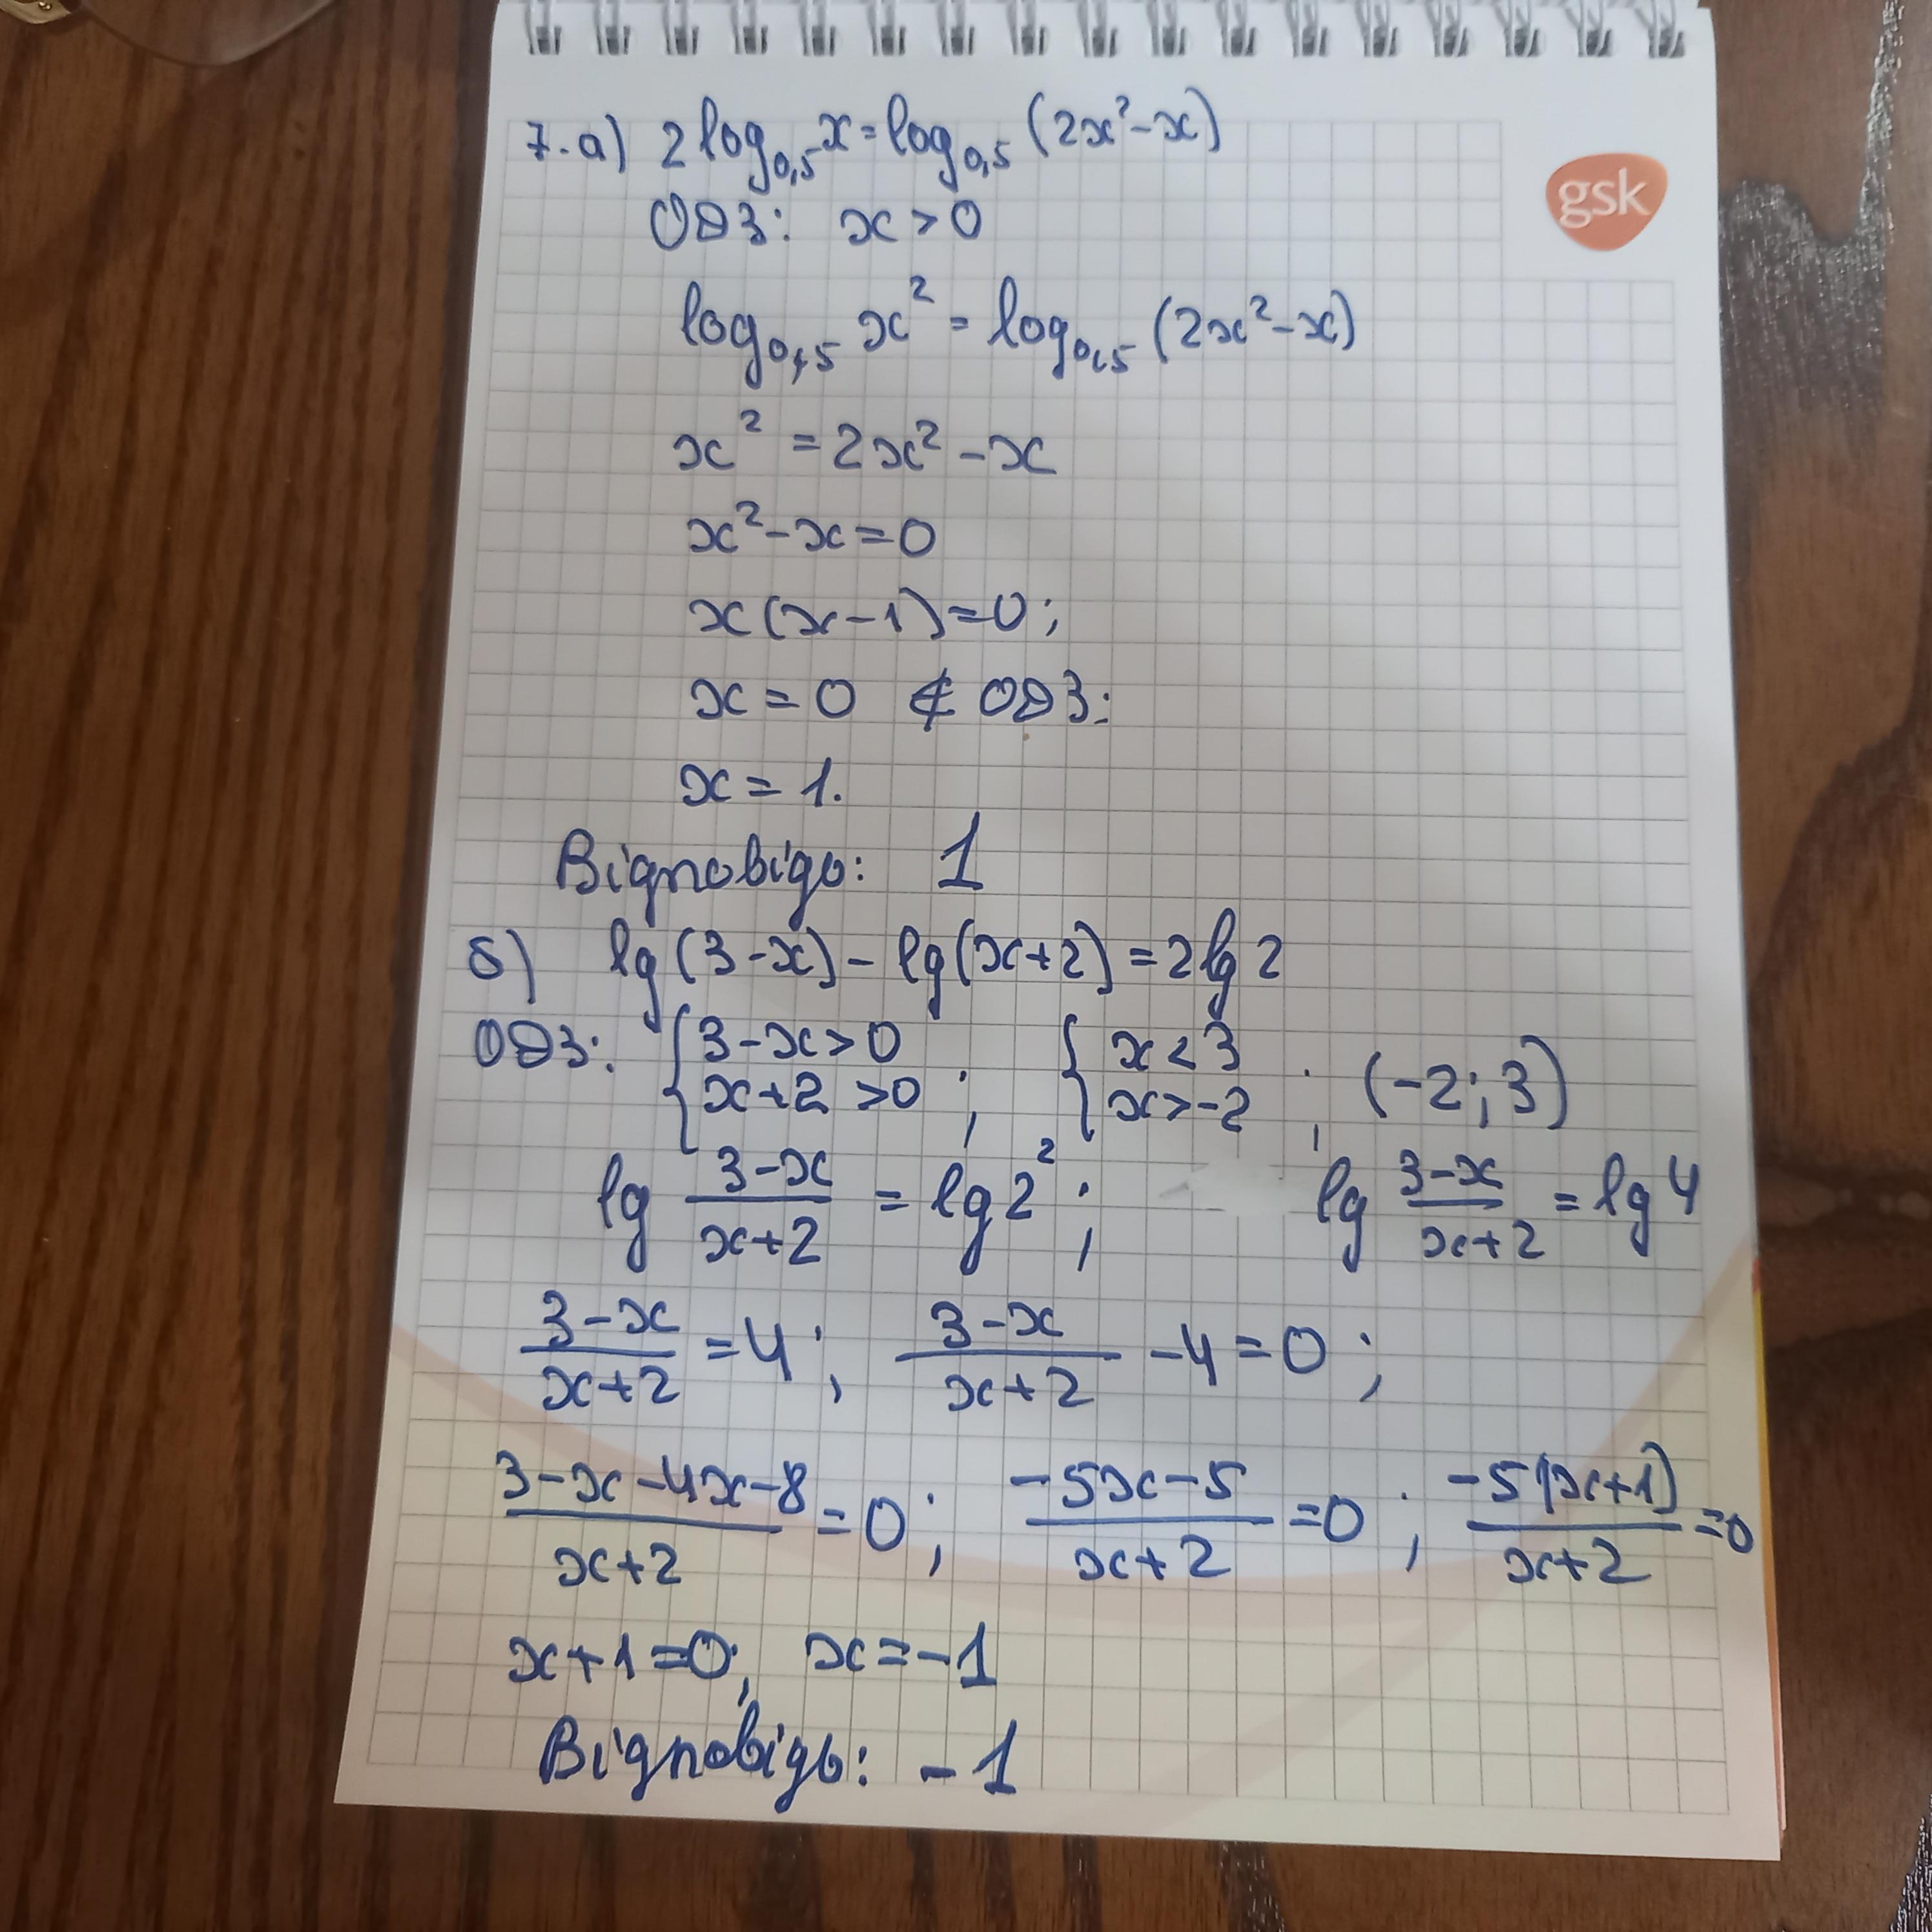 7. а) 2 log₀,₅ x = log₀,₅ (2x² - x)
gsk
ОДЗ: x > 0
log₀,₅ x² = log₀,₅ (2x² - x)
x² = 2x² - x
x² - x = 0
x(x - 1) = 0;
x = 0 ∉ ОДЗ:
x = 1.
Відповідь: 1
б) lg(3 - x) - lg(x + 2) = 2lg2
ОДЗ: { 3 - x > 0, x + 2 > 0 ; { x < 3, x > -2 ; (-2; 3)
lg (3 - x)/(x + 2) = lg2² ; lg (3 - x)/(x + 2) = lg4
(3 - x)/(x + 2) = 4 ; (3 - x)/(x + 2) - 4 = 0 ;
(3 - x - 4x - 8)/(x + 2) = 0 ; (-5x - 5)/(x + 2) = 0 ; (-5(x + 1))/(x + 2) = 0
x + 1 = 0; x = -1
Відповідь: -1